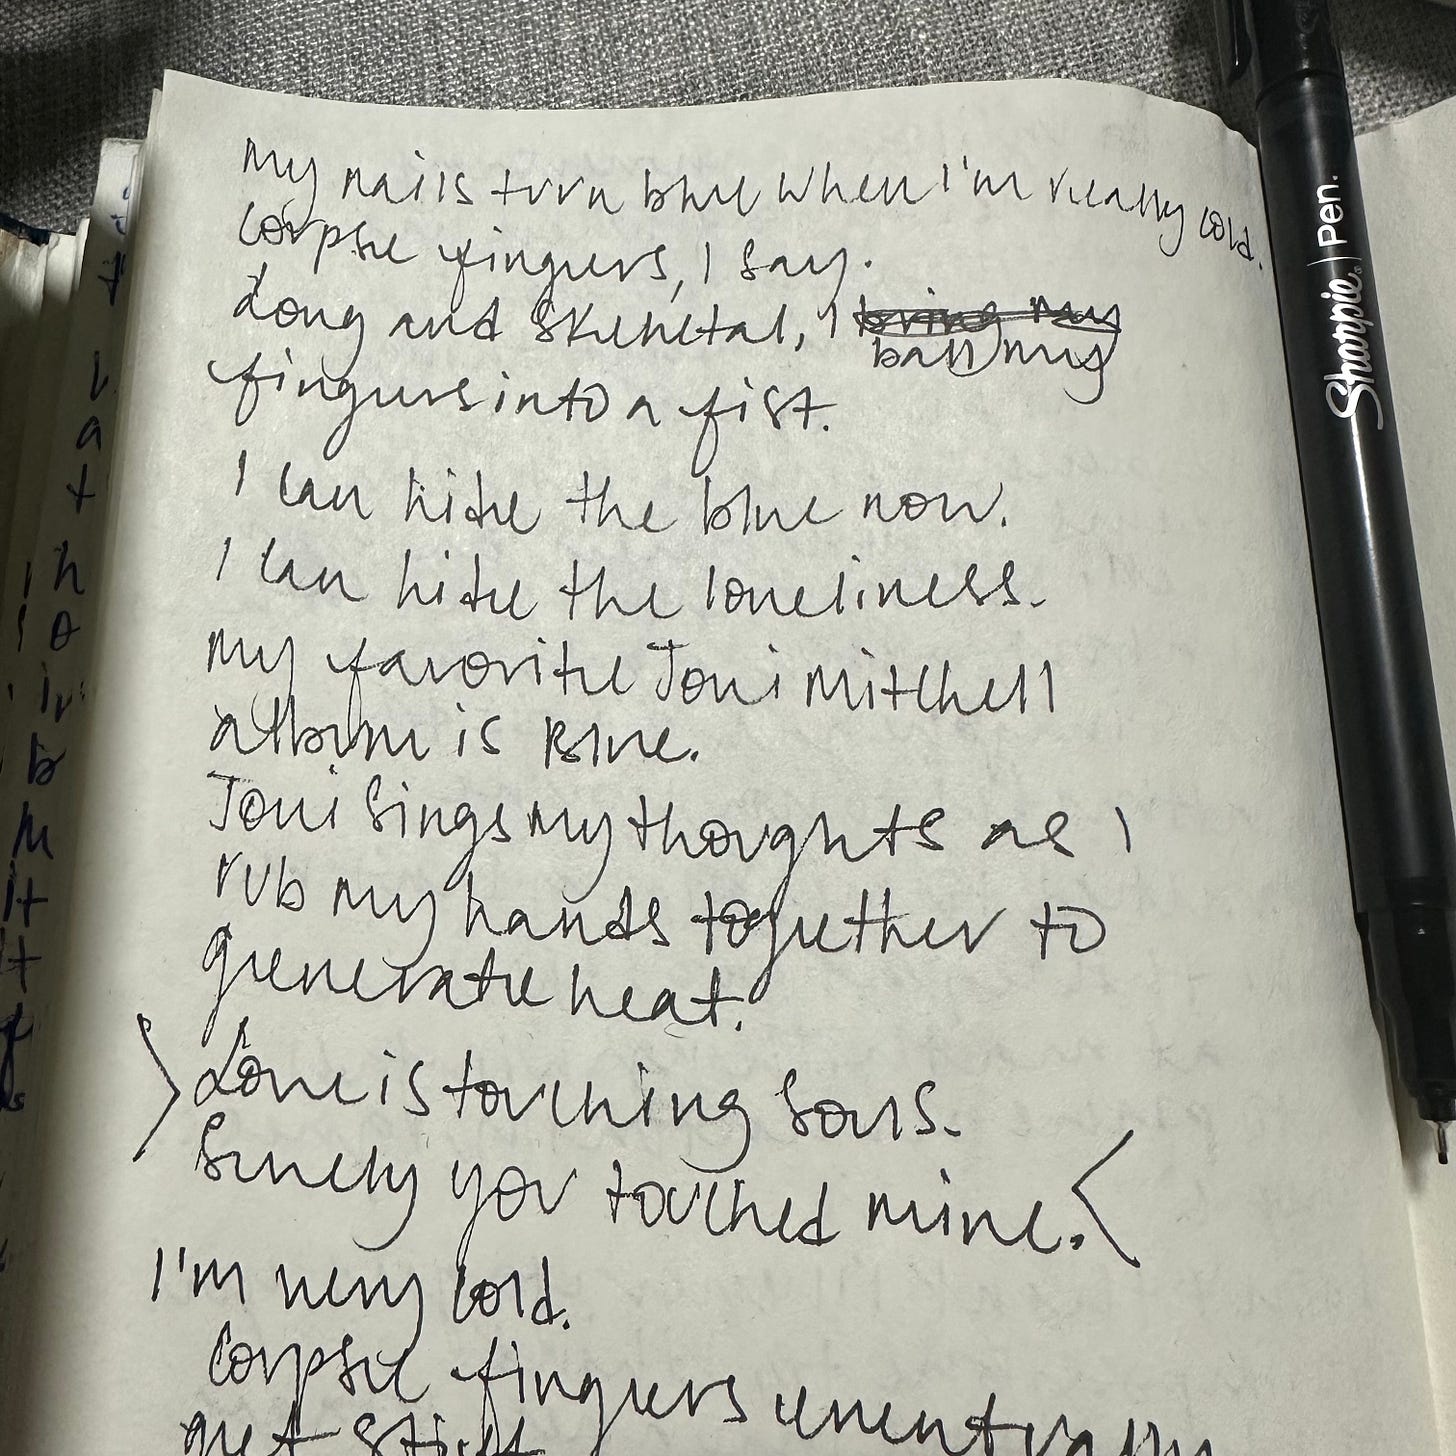 My nails turn blue when I'm really cold.
Corpse fingers, I say.
Long and skeletal, I bring my
ball my
fingers into a fist.
I can hide the blue now.
I can hide the loneliness.
My favorite Joni Mitchell
album is Blue.
Joni sings my thoughts as I
rub my hands together to
generate heat.
Love is touching souls.
Surely you touched mine.
I'm very cold.
Corpse fingers eventually
get stiff
Sharpie. | Pen.